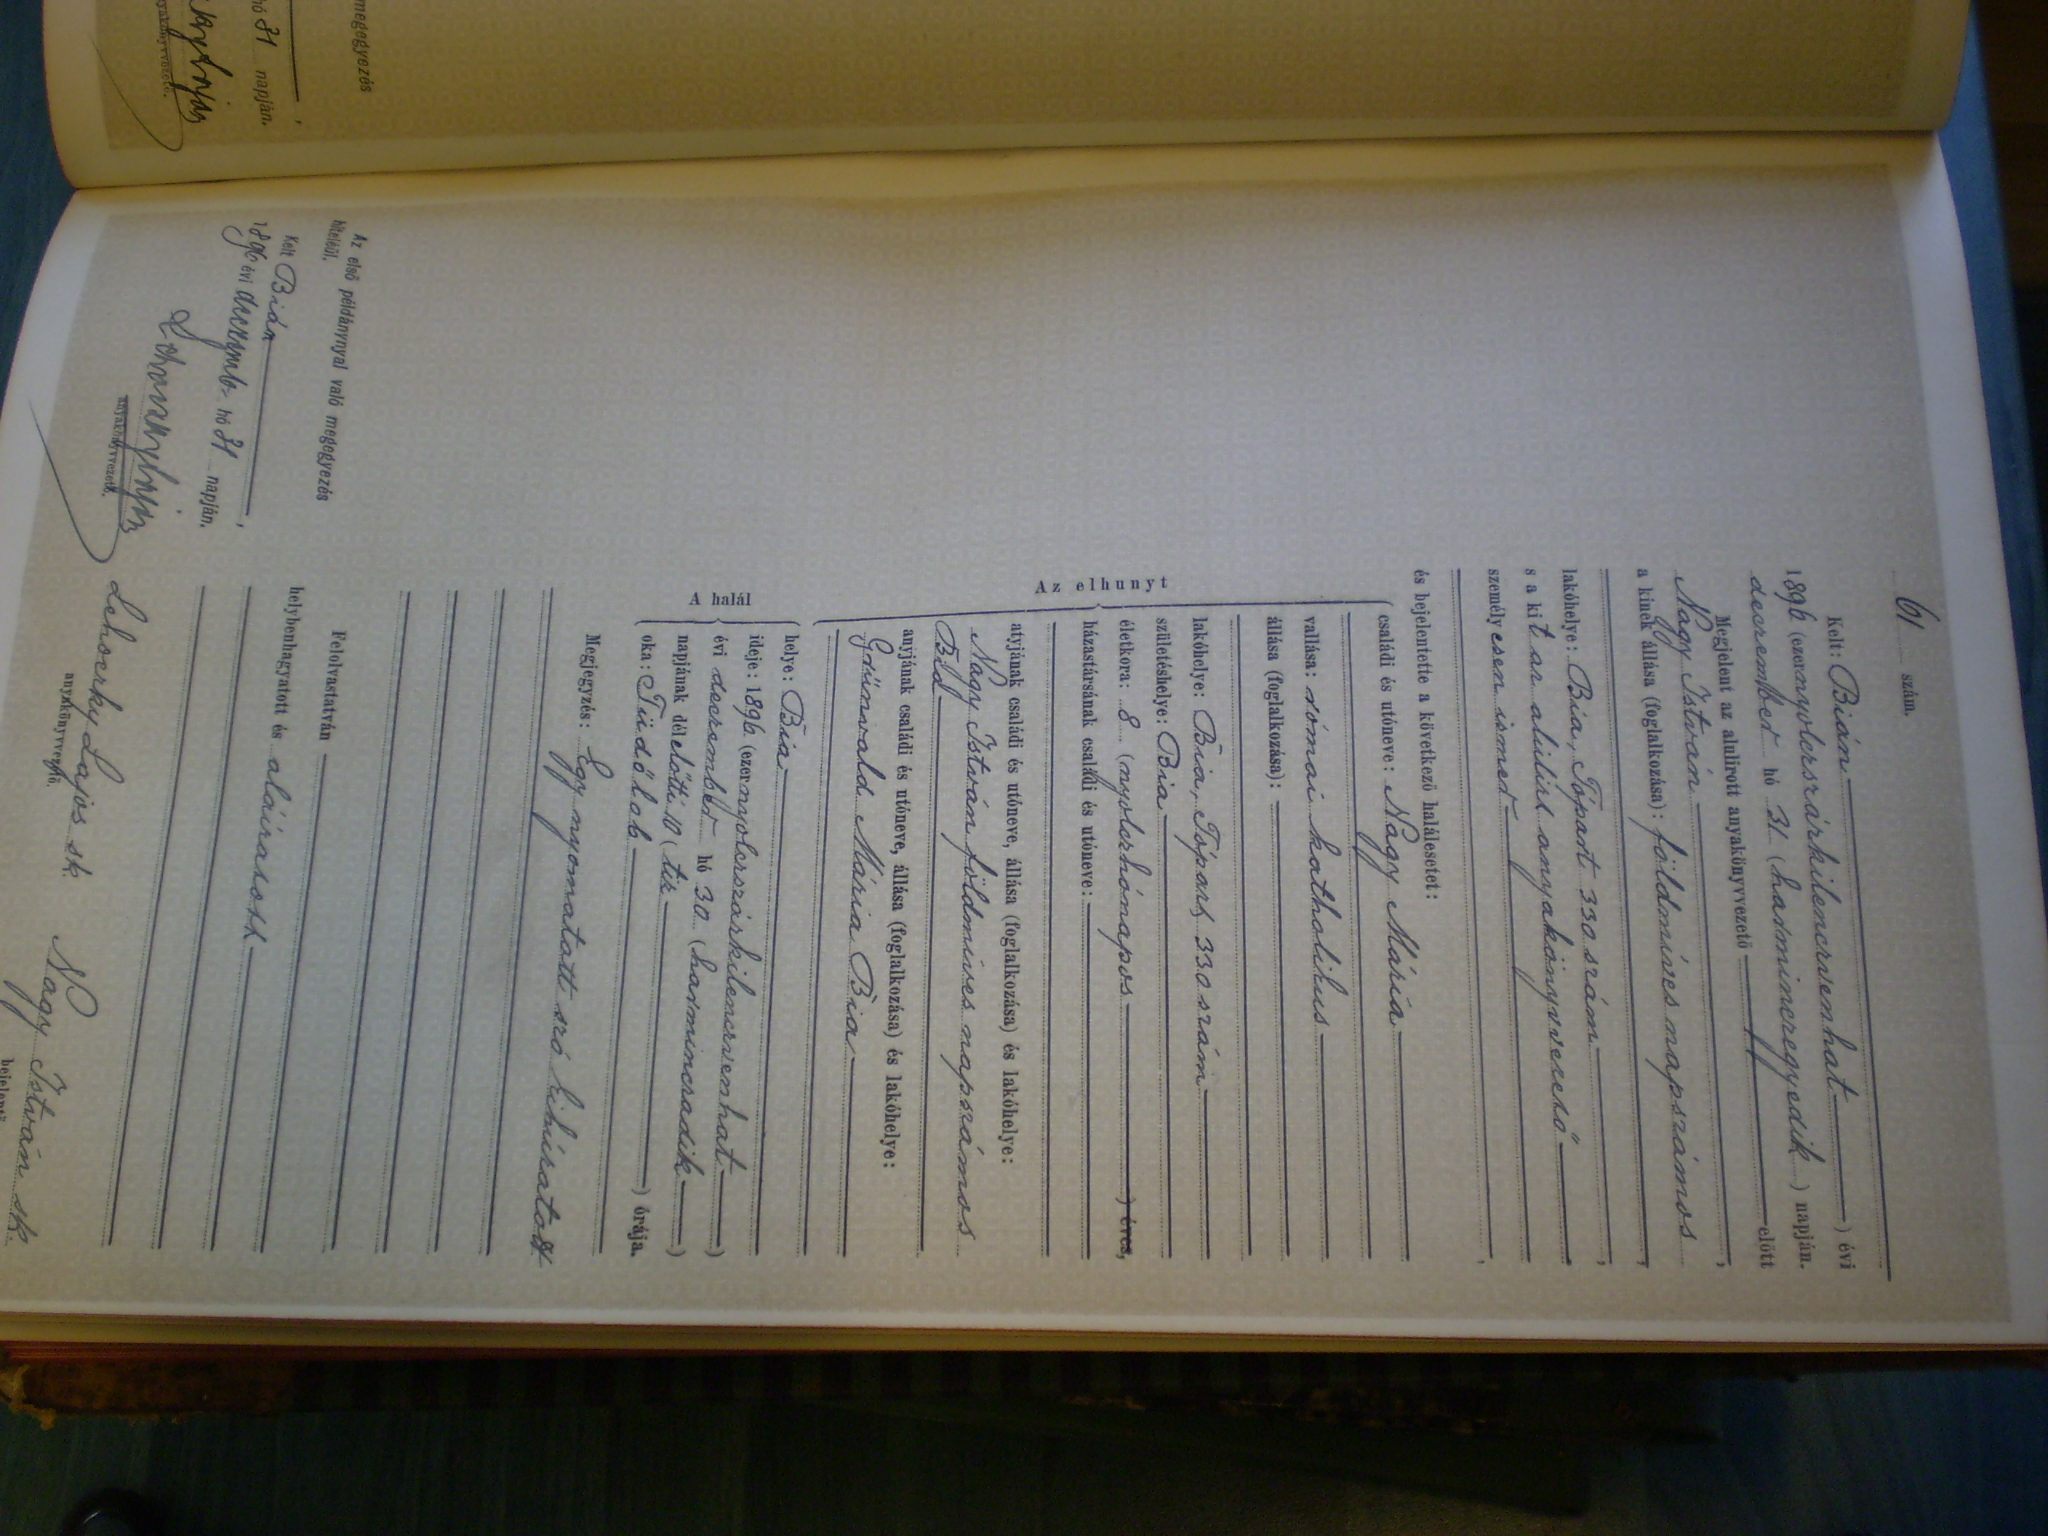 megegyezés
hó 31 napján.
anyakönyvvezető.
61 szám.
Kelt: Bián
1896 (ezernyolcszázkilenczvenhat ) évi
december hó 31 (harminczegyedik ) napján.
Megjelent az alulirott anyakönyvvezető előtt
Nagy István ,
a kinek állása (foglalkozása): földmíves napszámos
,
lakóhelye: Bia, Tópart 330 szám ,
s a kit az alulirt anyakönyvvezető
személyesen ismer ,
és bejelentette a következő halálesetet:
Az elhunyt
családi és utóneve: Nagy Mária
vallása: római katholikus
állása (foglalkozása):
lakóhelye: Bia, Tópart 330 szám
születéshelye: Bia
életkora: 8 (nyolczhónapos ) éves,
házastársának családi és utóneve:
atyjának családi és utóneve, állása (foglalkozása) és lakóhelye:
Nagy István földmíves napszámos
Bia
anyjának családi és utóneve, állása (foglalkozása) és lakóhelye:
Grünwald Mária Bia
A halál
helye: Bia
ideje: 1896 (ezernyolcszázkilenczvenhat )
évi december hó 30 (harminczadik )
napjának délelőtti 10 (tiz ) órája.
oka: Tüdőlob
Megjegyzés: Egy nyomatatt szó kihúzatott
Felolvastatván
helybenhagyatott és aláíratott
Lehoczky Lajos sk.
anyakönyvvezető.
Nagy István sk.
bejelentő
Az első példánynyal való megegyezés
hiteléül.
Kelt Bián ,
1896 évi decemb= hó 31 napján.
anyakönyvvezető.